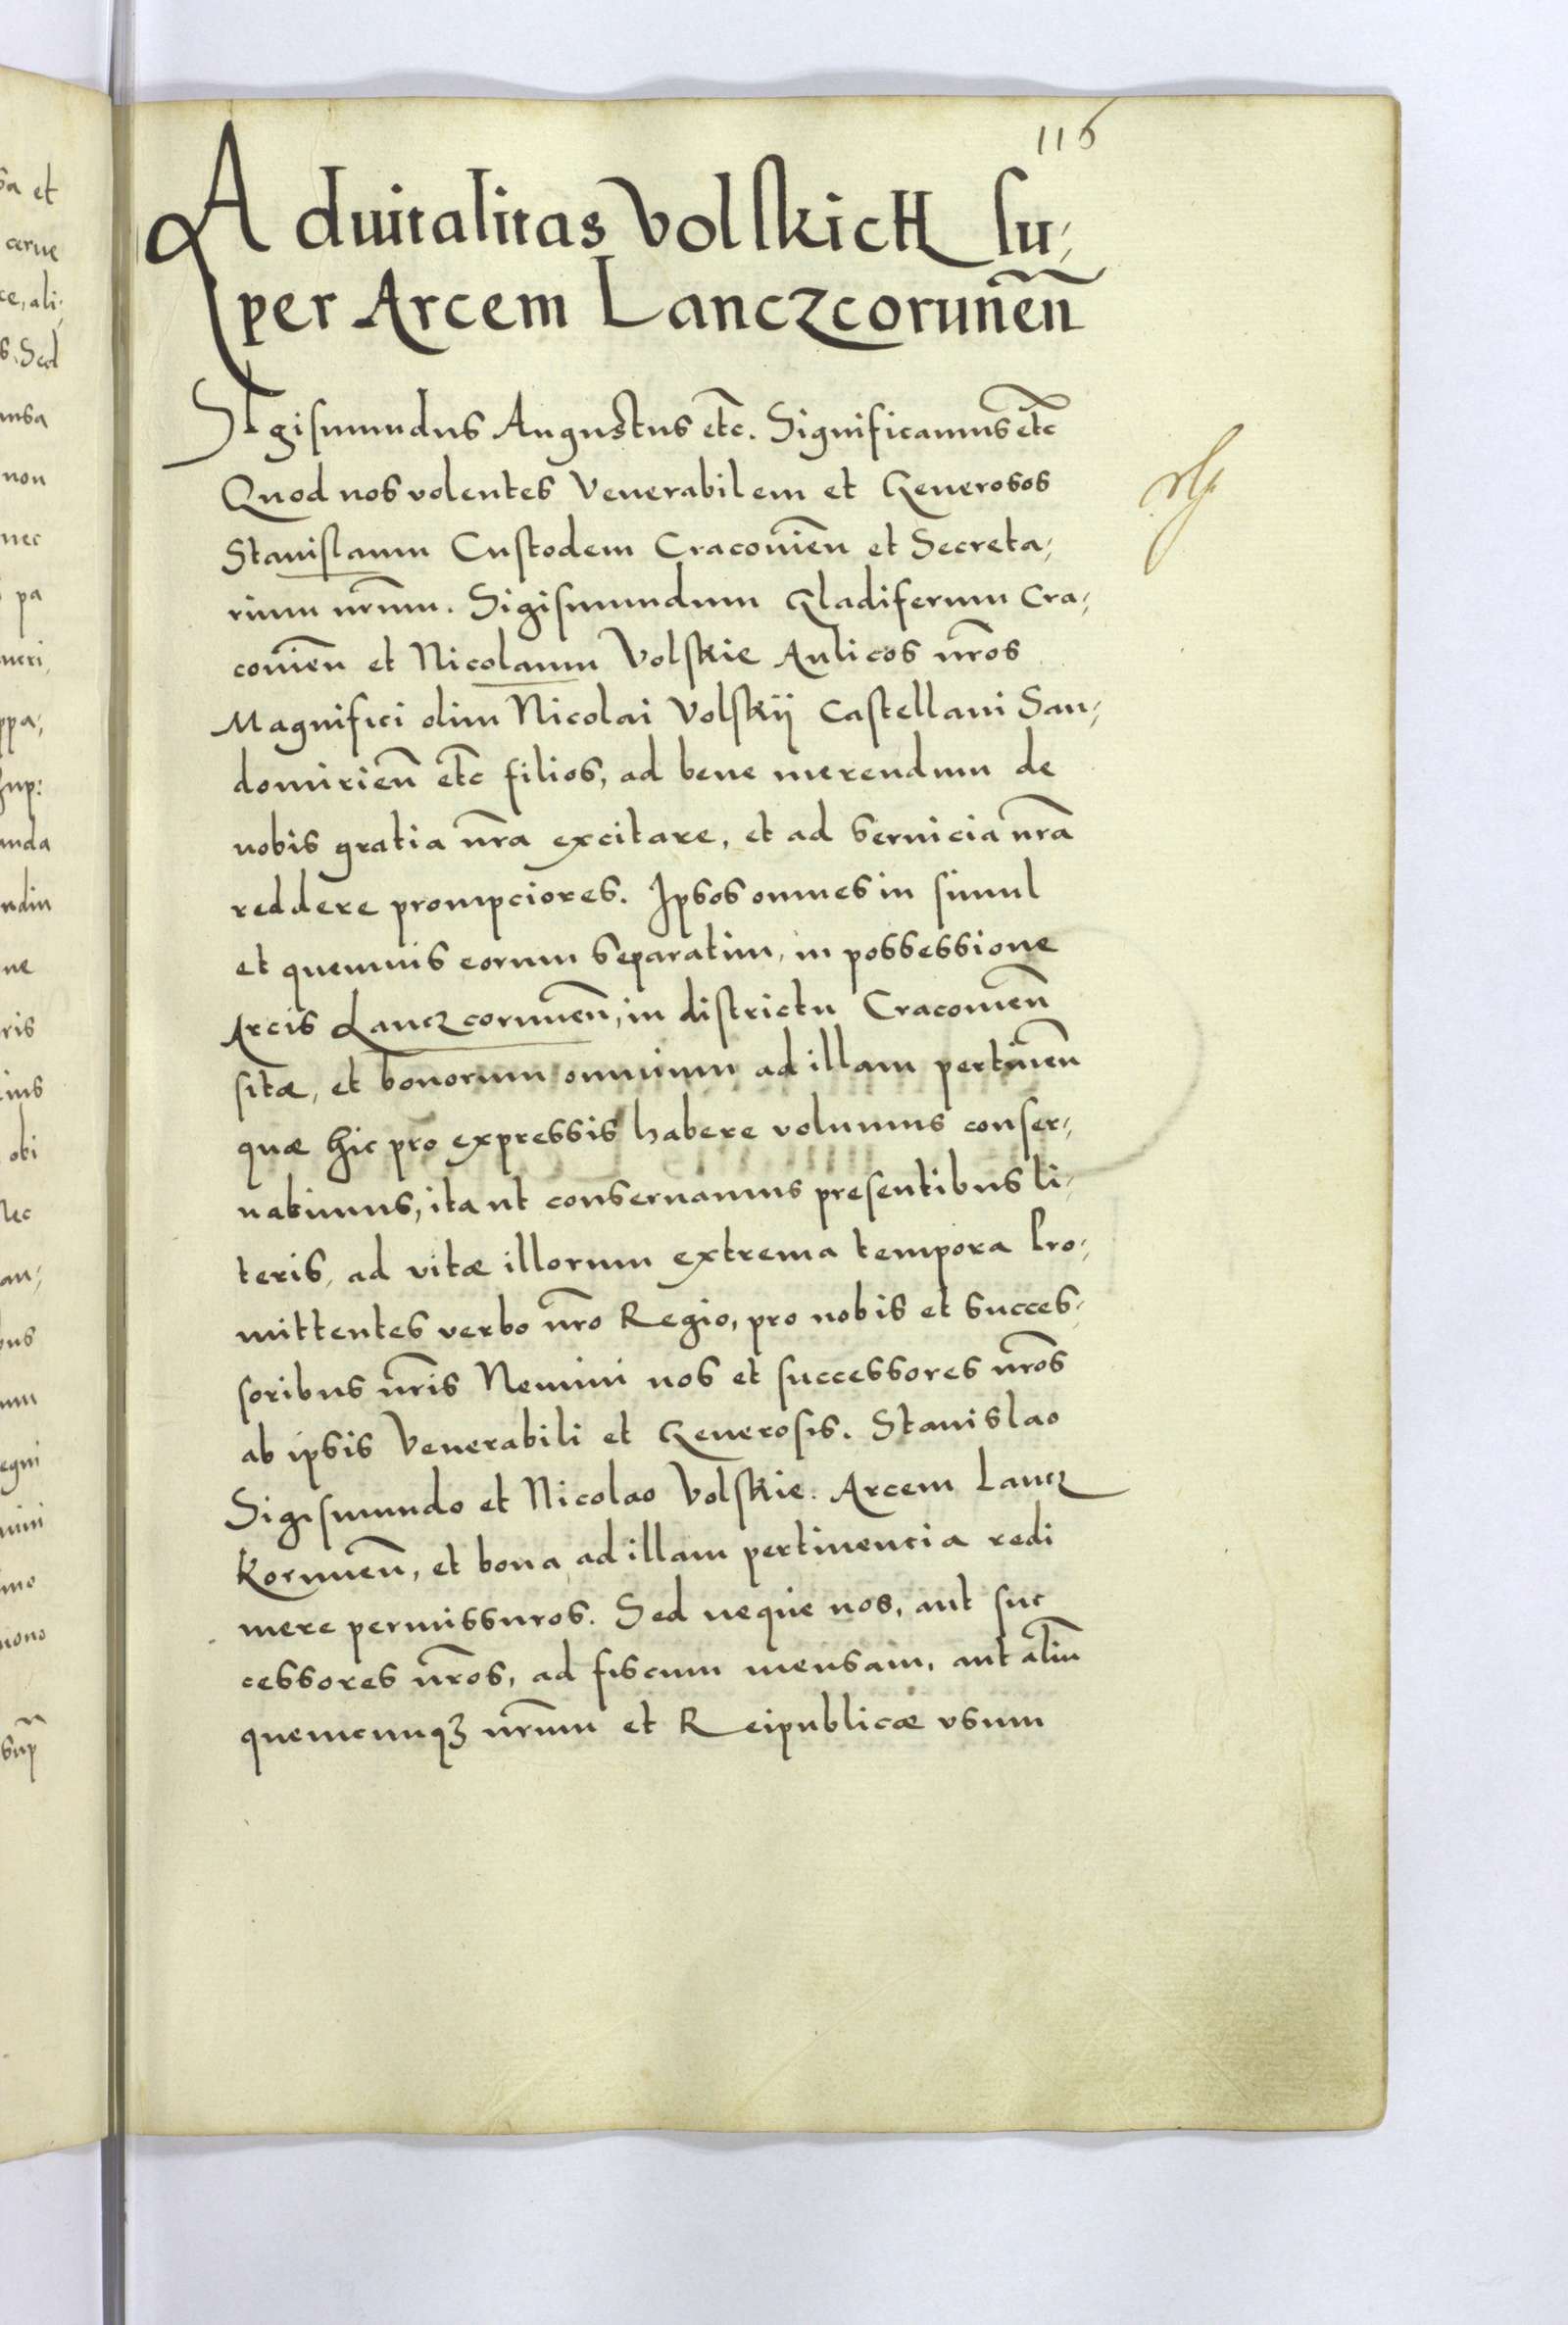 116
Aduitalitas Volskich su;
per Arcem Lanczcorunen̄
Sigismundus Augustus etc̄. Significamus etc̄
Quod nos volentes Venerabilem et Generosos
Stanislaum Custodem Cracouien̄ et Secreta;
rium nr̄um. Sigismundum Gladiferum Cra;
couien̄ et Nicolaum Volskie Aulicos nr̄os
Magnifici olim Nicolai Volskÿ Castellani San;
domirien̄ etc̄ filios, ad bene merendum de
nobis gratia nr̄a excitare, et ad seruicia nr̄a
reddere prompciores. Ipsos omnes in simul
et quemuis eorum separatim, in possessione
Arcis Lanczcorunen̄, in districtu Cracouien̄
sitæ, et bonorum omnium ad illam pertinen̄
quæ hic pro expressis habere volumus conser;
uabimus, ita ut conseruamus presentibus li;
teris, ad vitæ illorum extrema tempora Pro;
mittentes verbo nr̄o Regio, pro nobis et succes;
soribus nr̄is Nemini nos et successores nr̄os
ab ipsis Venerabili et Generosis. Stanislao
Sigismundo et Nicolao Volskie. Arcem Lancz
korunen̄, et bona ad illam pertinencia redi
mere permissuros. Sed neque nos, aut suc
cessores nr̄os, ad fiscum mensam, aut aliū
quemcunqꝫ nr̄um et Reipublicæ vsum